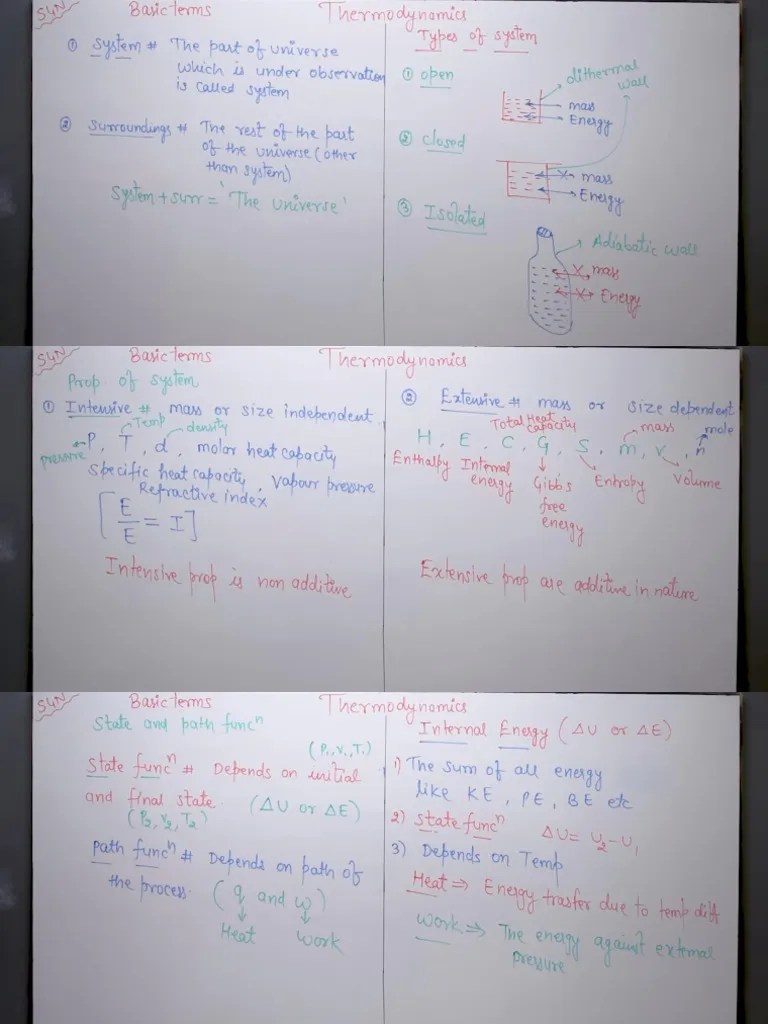 S4N
Basic terms
Thermodynamics
① System # The part of universe
which is under observation
is called system
② Surroundings # The rest of the part
of the universe (other
than system)
System + surr = 'The universe'
Types of system
① open
dithermal
wall
mass
Energy
② closed
mass
Energy
③ Isolated
Adiabatic wall
mass
Energy
S4N
Basic terms
Thermodynamics
Prop. of system
① Intensive # mass or size independent
Temp
density
pressure
P, T, d, molar heat capacity
specific heat capacity, vapour pressure
Refractive index
[E/E = I]
Intensive prop is non additive
② Extensive # mass or size dependent
Total Heat
capacity
mass
mole
H, E, C, G, S, m, v, n
Enthalpy
Internal
energy
Gibbs
free
energy
Entropy
Volume
Extensive prop are additive in nature
S4N
Basic terms
Thermodynamics
State and path funcⁿ
(P₁,V₁,T₁)
State funcⁿ # Depends on initial
and final state. (ΔU or ΔE)
(P₂,V₂,T₂)
Path funcⁿ # Depends on path of
the process. (q and w)
Heat
Work
Internal Energy (ΔU or ΔE)
1) The sum of all energy
like KE, PE, BE etc
2) State funcⁿ ΔU = U₂ - U₁
3) Depends on Temp
Heat ⇒ Energy trasfer due to temp diff
Work ⇒ The energy against external
pressure